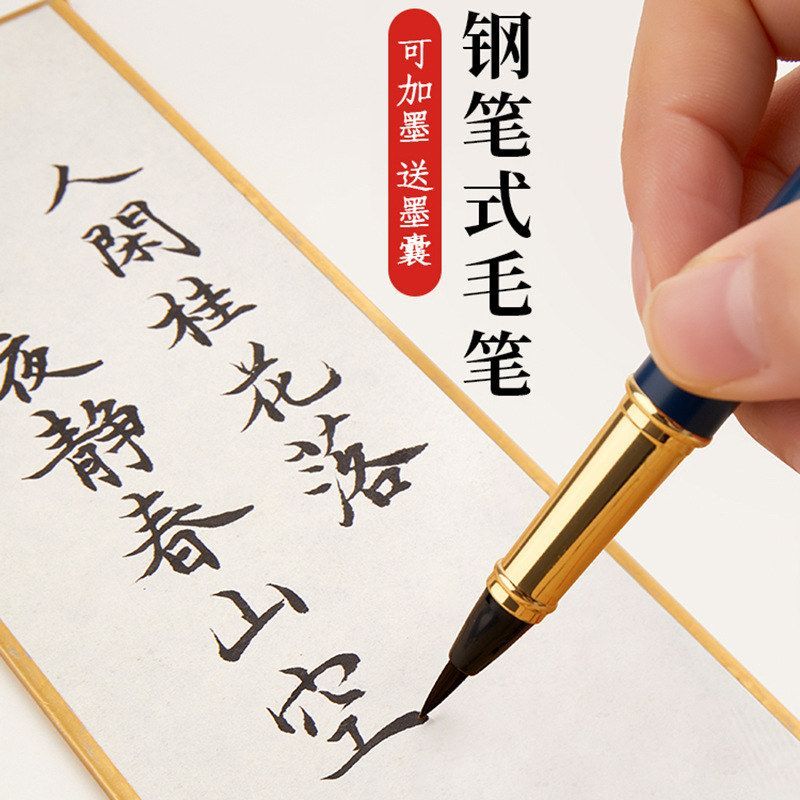 钢笔式毛笔
可加墨 送墨囊
人閑桂花落
夜静春山空